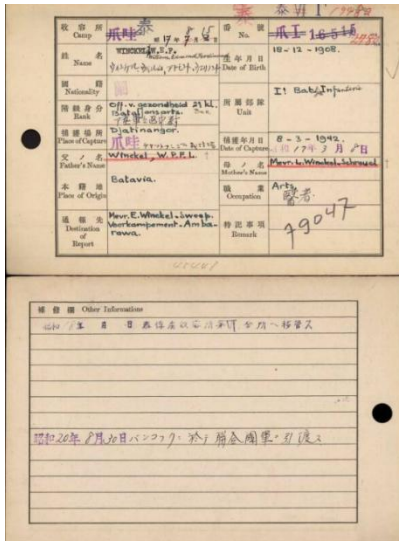 收容所 Camp 爪哇 泰
昭和 17年 8月 15日
番號 No. 爪 I 16515
姓名 Name WINCKEL, W.E.F.
生年月日 Date of Birth 18-12-1908.
國籍 Nationality
階級身分 Rank Off. v. gezondheid 2e kl.
Bataljonsarts.
所屬部隊 Unit I: Bat. Infanterie
捕獲場所 Place of Capture Djatinangor.
爪哇
捕獲年月日 Date of Capture 8-3-1942.
昭和 17年 3月 8日
父ノ名 Father's Name Winckel, W.P.F.L.
母ノ名 Mother's Name Mevr. L. Winckel-Schreuel
本籍地 Place of Origin Batavia.
職業 Occupation Arts.
醫者
通報先 Destination of Report Mevr. E. Winckel-Sweep.
Voorkampement. Amba-
rawa.
特記事項 Remark 79047
補修欄 Other Informations
昭和 年 月 日 泰俘虜收容所第 分所ヘ移管ス
昭和20年 8月30日バンコックニ於テ聯合國軍ニ引渡ス